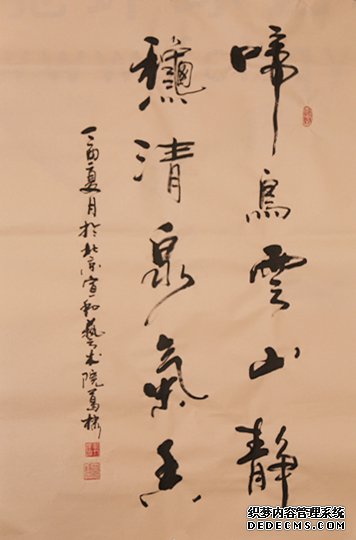 啼鳥雲山靜
穐清泉氣香
丁酉夏月於北京宣和藝术院萬
织梦内容管理系统
DEDECMS.COM